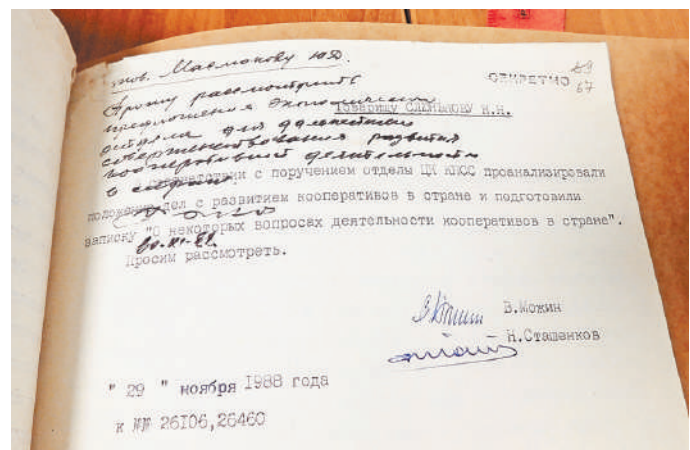 тов. Маслюкову Ю.Д.
СЕКРЕТНО
69
67
Прошу рассмотреть
предложения экономического
отдела для дальнейшего
совершенствования развития
кооперативной деятельности
в стране.
Товарищу СЛЮНЬКОВУ Н.Н.
соответствии с поручением отделы ЦК КПСС проанализировали
положение дел с развитием кооперативов в стране и подготовили
записку "О некоторых вопросах деятельности кооперативов в стране".
Просим рассмотреть.
В.Можин
Н.Сташенков
" 29 " ноября 1988 года
к №№ 26106,26460